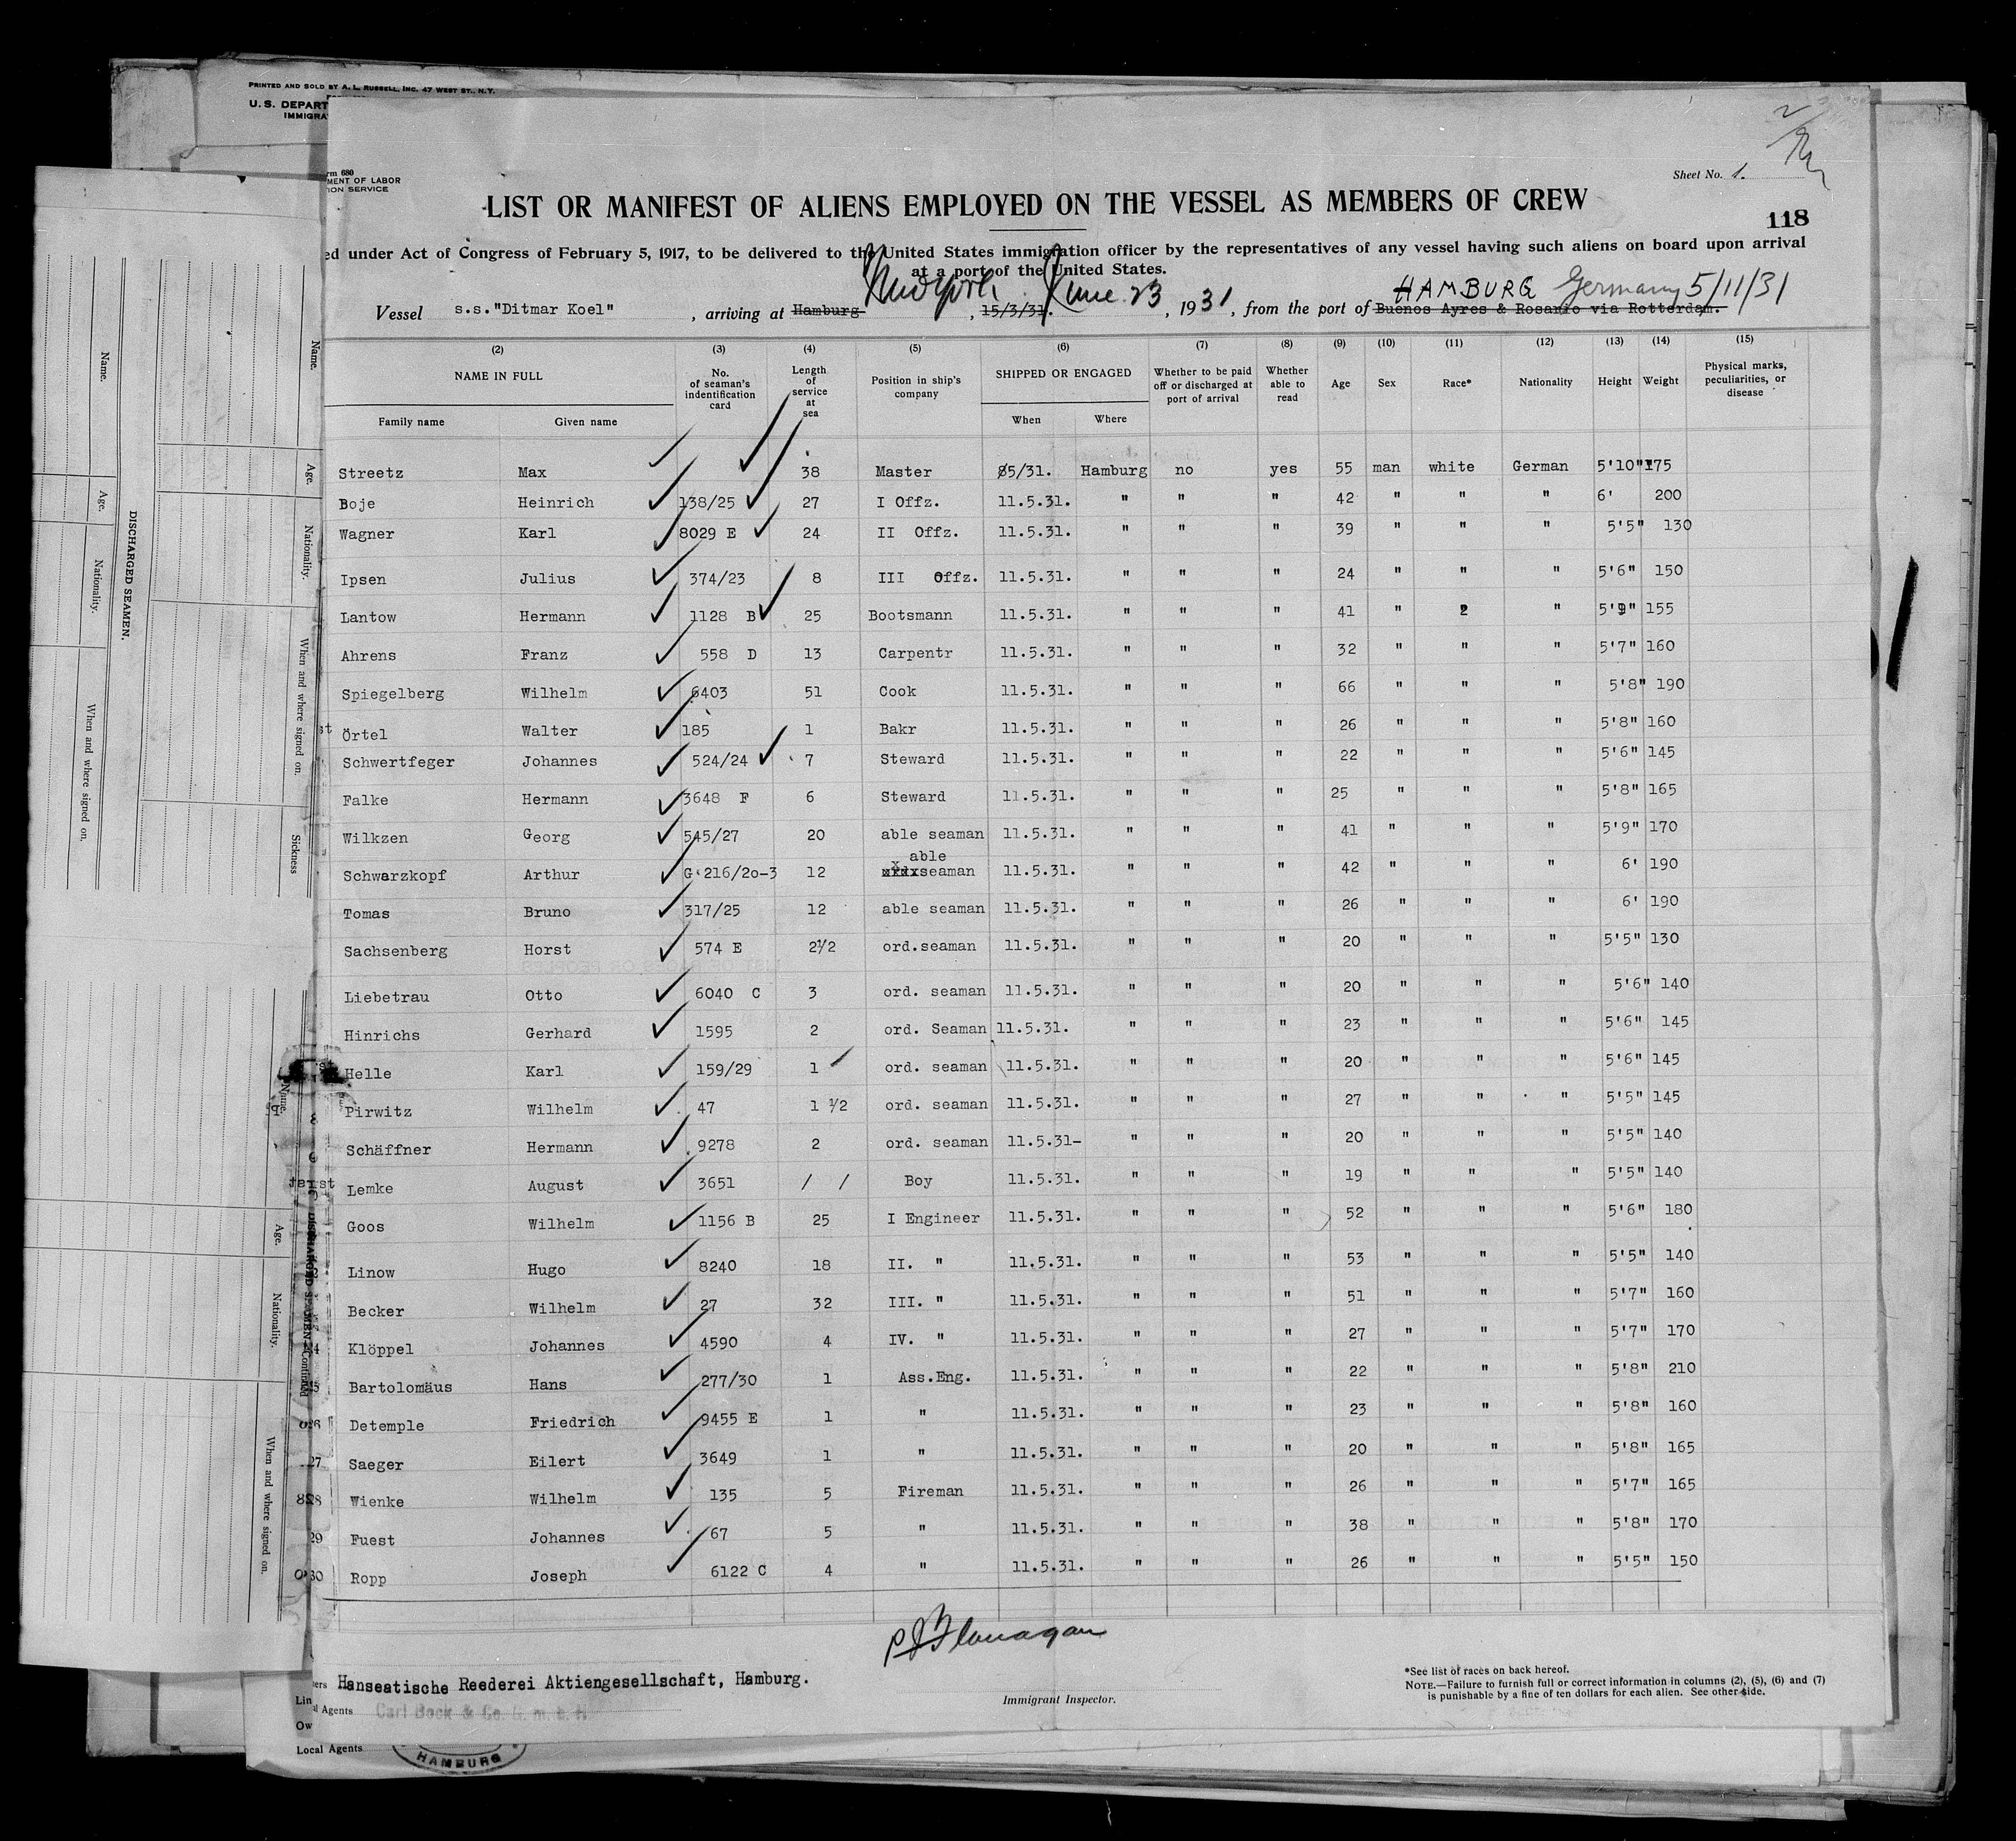 PRINTED AND SOLD BY A. L. RUSSELL, INC. 47 WEST ST., N.Y.
U. S. DEPART
IMMIGRA
rm 680
MENT OF LABOR
ION SERVICE
Sheet No. 1.
LIST OR MANIFEST OF ALIENS EMPLOYED ON THE VESSEL AS MEMBERS OF CREW
118
ed under Act of Congress of February 5, 1917, to be delivered to the United States immigration officer by the representatives of any vessel having such aliens on board upon arrival
at a port of the United States.
New York June 23 HAMBURG Germany 5/11/31
Vessel s.s."Ditmar Koel" , arriving at Hamburg , 15/3/31. , 1931, from the port of Buenos Ayres & Rosario via Rotterdam.
(2) (3) (4) (5) (6) (7) (8) (9) (10) (11) (12) (13) (14) (15)
NAME IN FULL No. of seaman's indentification card Length of service at sea Position in ship's company SHIPPED OR ENGAGED Whether to be paid off or discharged at port of arrival Whether able to read Age Sex Race* Nationality Height Weight Physical marks, peculiarities, or disease
Family name Given name When Where
Streetz Max 38 Master 05/31. Hamburg no yes 55 man white German 5'10" 175
Boje Heinrich 138/25 27 I Offz. 11.5.31. " " " 42 " " " 6' 200
Wagner Karl 8029 E 24 II Offz. 11.5.31. " " " 39 " " " 5'5" 130
Ipsen Julius 374/23 8 III Offz. 11.5.31. " " " 24 " " " 5'6" 150
Lantow Hermann 1128 B 25 Bootsmann 11.5.31. " " " 41 " " 5'9" 155
Ahrens Franz 558 D 13 Carpentr 11.5.31. " " " 32 " " " 5'7" 160
Spiegelberg Wilhelm 6403 51 Cook 11.5.31. " " " 66 " " " 5'8" 190
Örtel Walter 185 1 Bakr 11.5.31. " " " 26 " " " 5'8" 160
Schwertfeger Johannes 524/24 7 Steward 11.5.31. " " " 22 " " " 5'6" 145
Falke Hermann 3648 F 6 Steward 11.5.31. " " " 25 " " " 5'8" 165
Wilkzen Georg 545/27 20 able seaman 11.5.31. " " " 41 " " " 5'9" 170
able
Schwarzkopf Arthur G 216/20-3 12 seaman 11.5.31. " " " 42 " " " 6' 190
Tomas Bruno 317/25 12 able seaman 11.5.31. " " " 26 " " " 6' 190
Sachsenberg Horst 574 E 2 1/2 ord.seaman 11.5.31. " " " 20 " " " 5'5" 130
Liebetrau Otto 6040 C 3 ord. seaman 11.5.31. " " " 20 " " " 5'6" 140
Hinrichs Gerhard 1595 2 ord. Seaman 11.5.31. " " " 23 " " " 5'6" 145
Helle Karl 159/29 1 ord. seaman 11.5.31. " " " 20 " " " 5'6" 145
Pirwitz Wilhelm 47 1 1/2 ord. seaman 11.5.31. " " " 27 " " " 5'5" 145
Schäffner Hermann 9278 2 ord. seaman 11.5.31- " " " 20 " " " 5'5" 140
Lemke August 3651 / / Boy 11.5.31. " " " 19 " " " 5'5" 140
Goos Wilhelm 1156 B 25 I Engineer 11.5.31. " " " 52 " " " 5'6" 180
Linow Hugo 8240 18 II. " 11.5.31. " " " 53 " " " 5'5" 140
Becker Wilhelm 27 32 III. " 11.5.31. " " " 51 " " " 5'7" 160
Klöppel Johannes 4590 4 IV. " 11.5.31. " " " 27 " " " 5'7" 170
Bartolomäus Hans 277/30 1 Ass.Eng. 11.5.31. " " " 22 " " " 5'8" 210
Detemple Friedrich 9455 E 1 " 11.5.31. " " " 23 " " " 5'8" 160
27 Saeger Eilert 3649 1 " 11.5.31. " " " 20 " " " 5'8" 165
Wienke Wilhelm 135 5 Fireman 11.5.31. " " " 26 " " " 5'7" 165
29 Fuest Johannes 67 5 " 11.5.31. " " " 38 " " " 5'8" 170
30 Ropp Joseph 6122 C 4 " 11.5.31. " " " 26 " " " 5'5" 150
P J Flanagan
Immigrant Inspector.
Hanseatische Reederei Aktiengesellschaft, Hamburg.
Agents Carl Bock & Co. G. m. b. H.
*See list of races on back hereof.
NOTE.—Failure to furnish full or correct information in columns (2), (5), (6) and (7)
is punishable by a fine of ten dollars for each alien. See other side.
Local Agents
HAMBURG
DISCHARGED SEAMEN.
Name. Age. Nationality. When and where signed on.
Name. Age. Nationality. When and where signed on. Sickness
DISCHARGED SEAMEN—Continued
Name. Age. Nationality. When and where signed on.